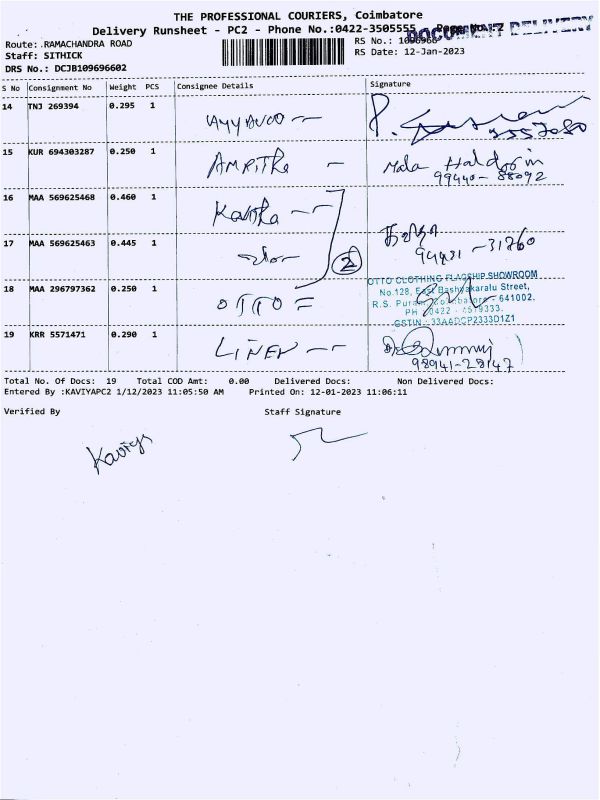 THE PROFESSIONAL COURIERS, Coimbatore
Delivery Runsheet - PC2 - Phone No.:0422-3505555
DOCUMENT DELIVERY
Route: RAMACHANDRA ROAD
RS No.: 109696
Staff: SITHICK
RS Date: 12-Jan-2023
DRS No.: DCJB109696602
S No Consignment No Weight PCS Consignee Details Signature
14 TNJ 269394 0.295 1
15 KUR 694303287 0.250 1 AMRITHA Mala
99440-88092
16 MAA 569625468 0.460 1 Kavika
17 MAA 569625463 0.445 1 2
94431-31760
18 MAA 296797362 0.250 1 OTTO
OTTO CLOTHING FLAGSHIP SHOWROOM
No.128, East Bashyakaralu Street,
R.S. Puram, Coimbatore - 641002.
PH : 0422 - 4579333.
GSTIN : 33AADCP2333D1Z1
19 KRR 5571471 0.290 1 LINEN
98941-28147
Total No. Of Docs: 19 Total COD Amt: 0.00 Delivered Docs: Non Delivered Docs:
Entered By :KAVIYAPC2 1/12/2023 11:05:50 AM Printed On: 12-01-2023 11:06:11
Verified By Staff Signature
Kaviya